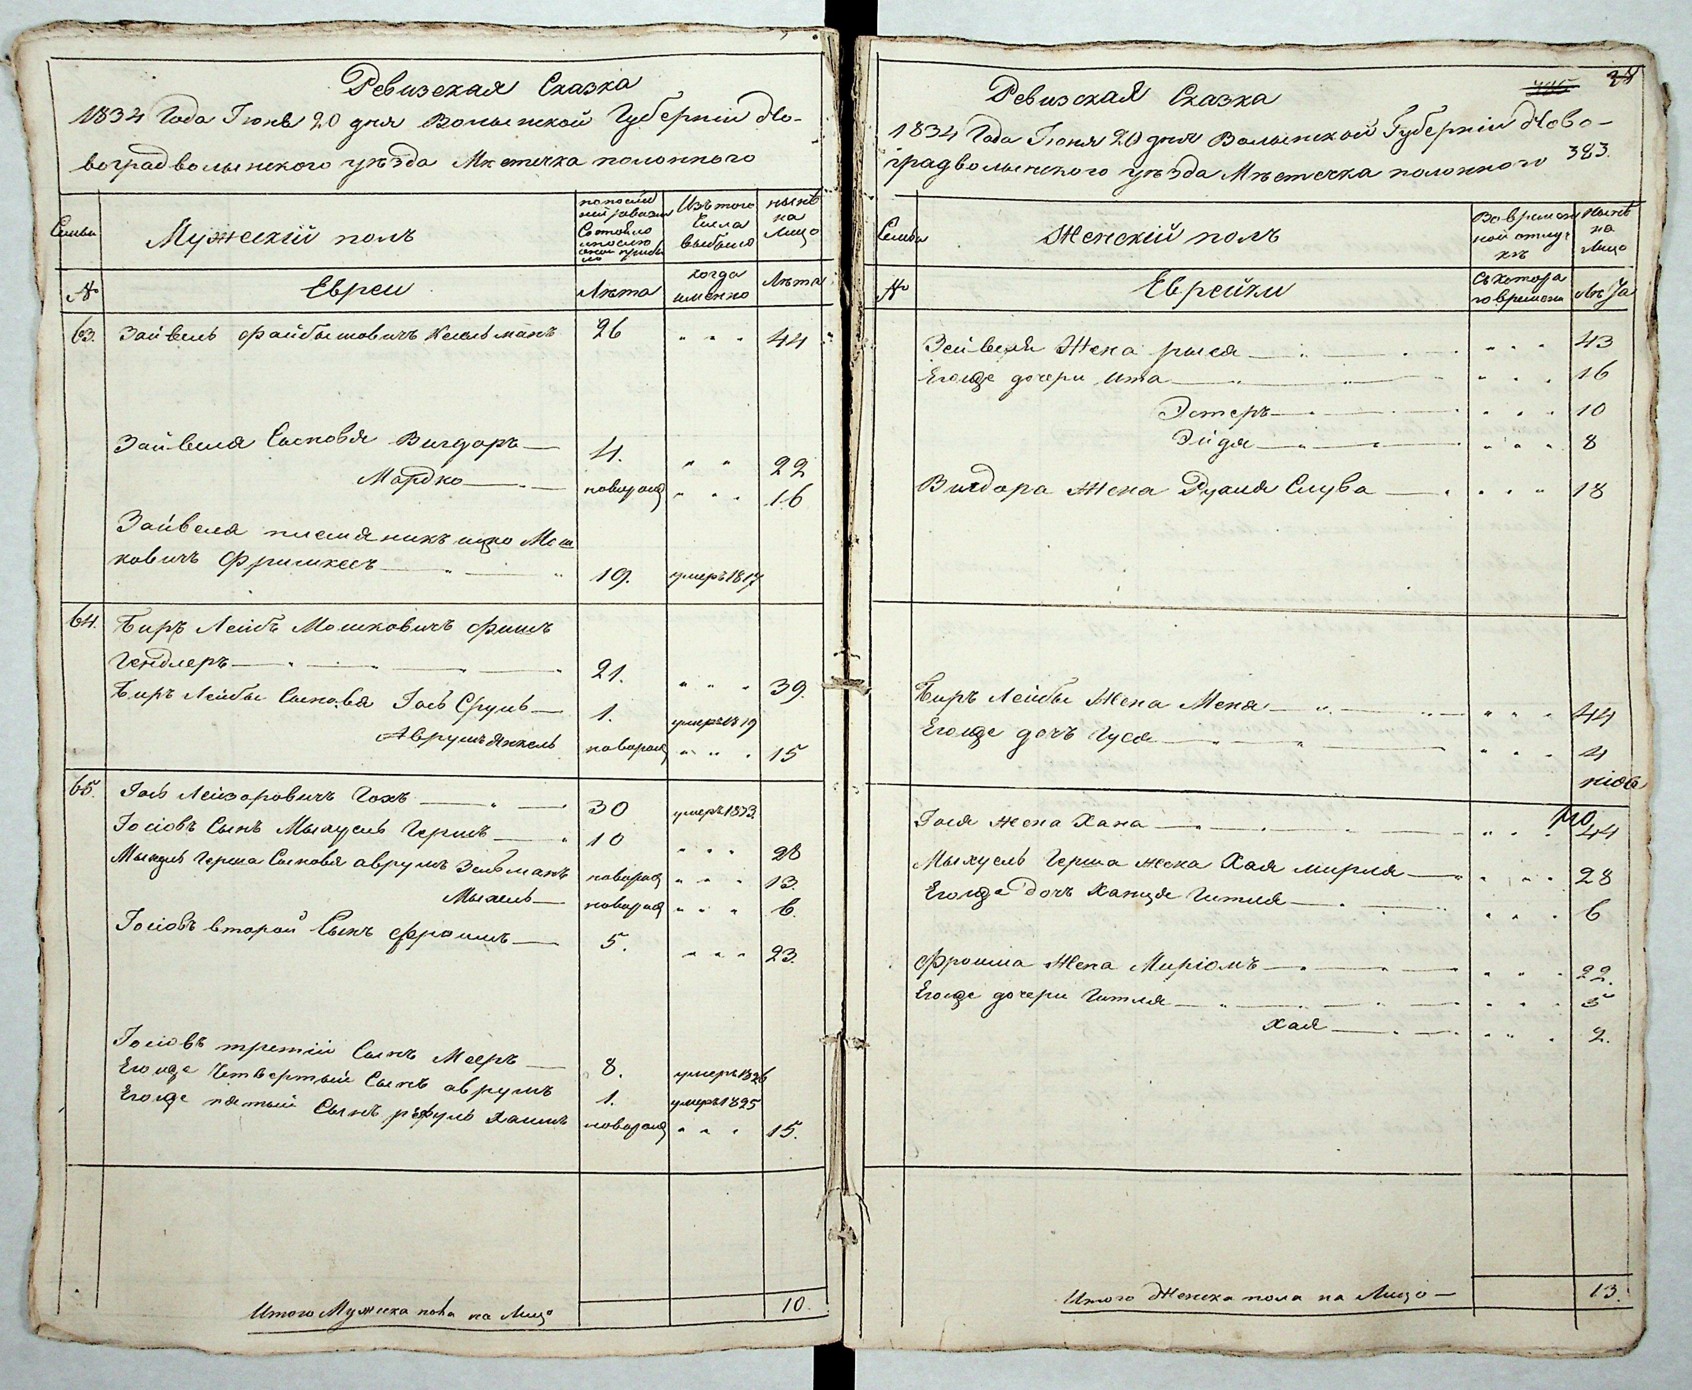 Ревизская Сказка
1834 Года Июня 20 дня Волынской Губернiи Но-
воградволынского уѣзда Мѣстечка полонного
Семьи
Мужескiй полъ
по последней ревизiи Состояло
Изъ того Числа выбыло
нынѣ на Лицо
№
Евреи
Лѣта
когда именно
Лѣта
63. Зайвель Файбышовичъ Кесельманъ 26 " " " 44
Зайвеля Сыновья Вигдоръ — 4. " " 22
Мордко — новорож " " " 16
Зайвеля племяникъ ицко Мош
ковичъ Фришкесъ — 19. умеръ 1817
64. Беръ Лейбъ Мошковичъ Фишъ
Гендлеръ — 21. " " " 39.
Беръ Лейбы Сыновья Iось Сруль — 1. умеръ 1819
Аврумъ Янкель новорож " " " 15
65. Iось Лейзоровичъ Гохъ — 30 умеръ 1833
Iосiовъ Сынъ Мыхуель Гершъ — 10 " " " 28
Мыхуель Герша Сыновья аврумъ Зельманъ новорож " " " 13.
Мыхель — новорож " " " 6.
Iосiовъ второй Сынъ Фроимъ — 5. " " " 23.
Iосiовъ третiй Сынъ Мееръ — 8. умеръ 1826
Егожде Четвертый Сынъ аврумъ 1. умеръ 1825
Егожде пятый Сынъ Хаимъ новорож " " " 15.
Итого Мужеска пола на Лицо 10.
28
Ревизская Сказка
1834 Года Июня 20 дня Волынской Губернiи Ново-
градволынского уѣзда Мѣстечка полонного 383.
Семьи
Женскiй полъ
Во временной отлучкѣ
нынѣ на Лицо
№
Еврейки
Съ котораго времени
Лѣта
Зейвеля Жена рыся — " " " 43
Егожде дочери Ита — " " " 16
Эстеръ — " " " 10
Эйдя — " " " 8
Вигдора Жена Рухля Слува — " " " 18
Беръ Лейбы Жена Меня — " " " 44
Егожде дочъ Гуся — " " " 4
Iося жена Хана — " " " 44
Мыхуель Герша жена Хая мирля — " " " 28
Егожде дочъ Ханця Гитля — " " " 6
Фроима Жена Мирiомъ — " " " 22.
Егожде дочери Гитля — " " " 5
Хая — " " " 2.
Итого Женска пола на Лицо — 13.